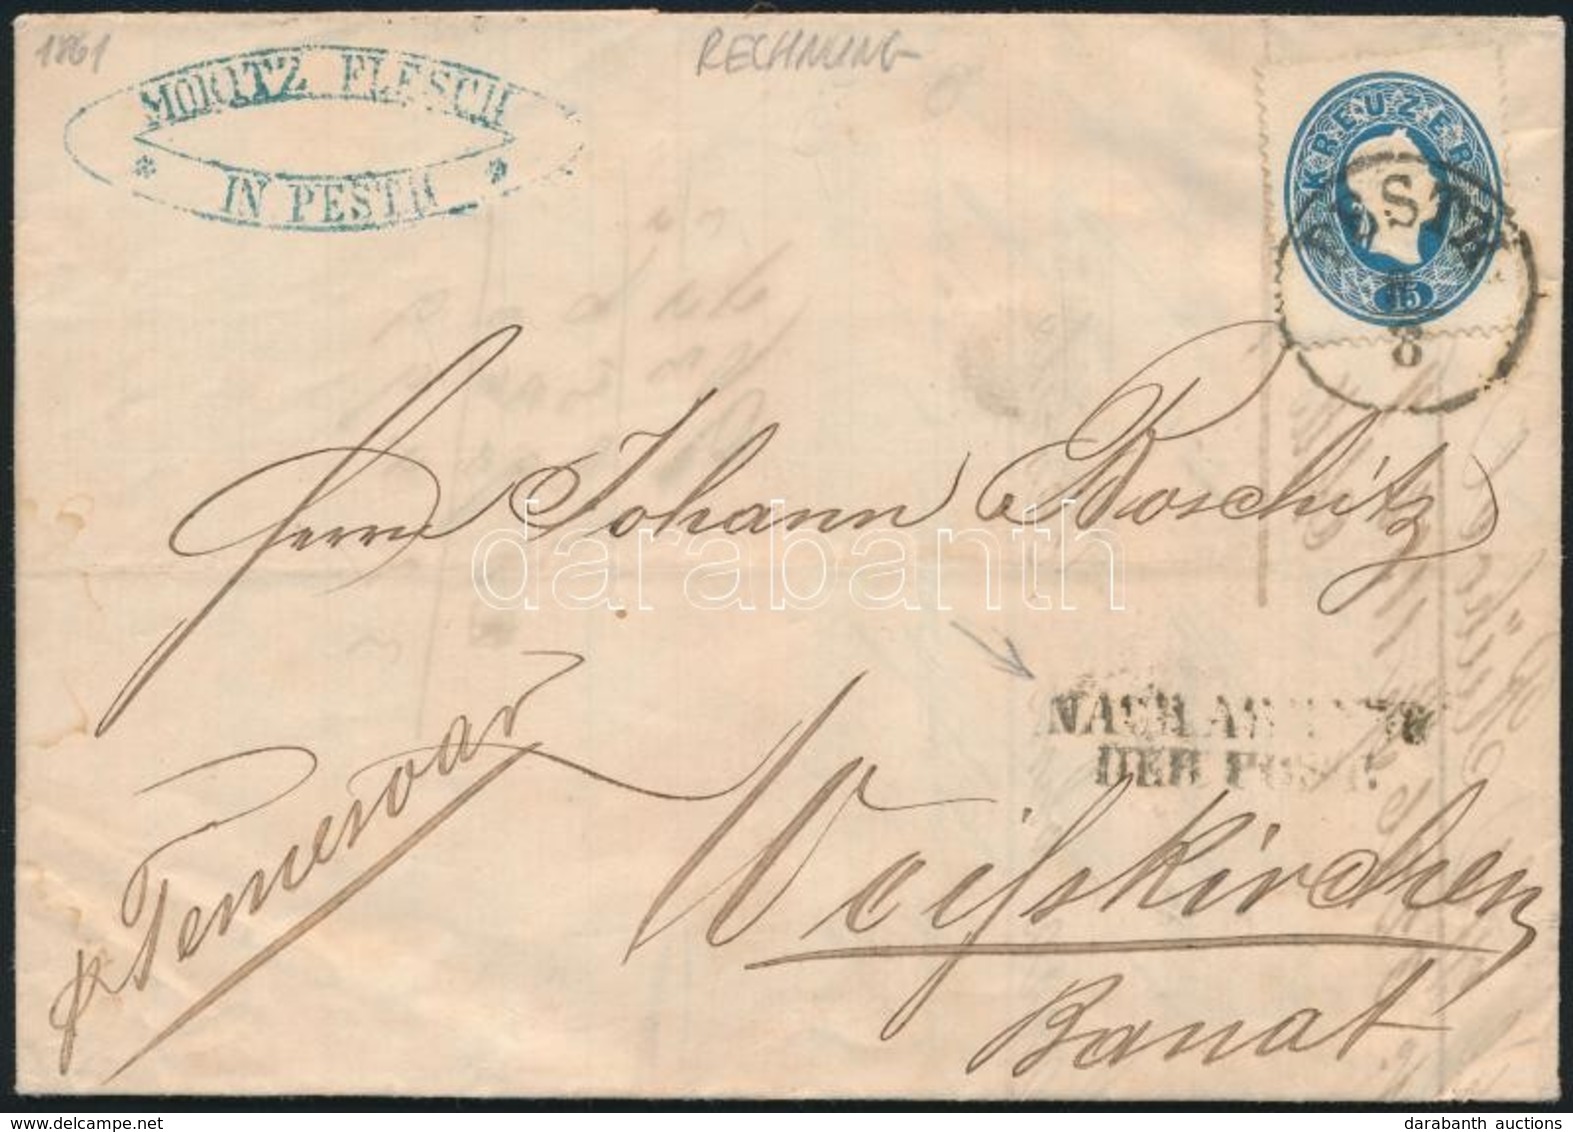 1861
RECHNUNG
MORITZ FLESCH
* IN PESTH *
KREUZER
15
PESTH
8
Herrn Johann Boschitz
darabanth
NACH ABGANG
DER POST.
pr Temesvar
Weißkirchen
Banat
darabanth auctions